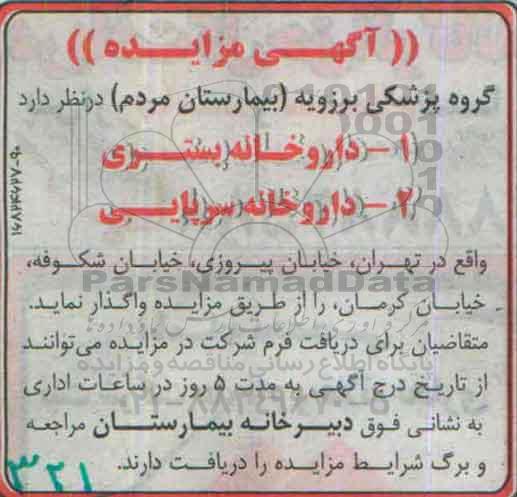 (( آگهـی مزایـده ))
گروه پزشکی برزویه (بیمارستان مردم) درنظر دارد
۱- داروخـانه بستـری
۲- داروخانه سرپایـی
واقع در تهـران، خیابـان پیـروزی، خیابـان شکـوفه،
خیابـان کرمـان، را از طریق مزایـده واگـذار نمایـد.
متقاضیان برای دریافت فرم شرکت در مزایـده می‌تواننـد
از تاریخ درج آگهـی به مدت ۵ روز در ساعـات اداری
به نشانـی فوق دبیـرخـانه بیمـارستــان مراجعه
و برگ شرایـط مزایـده را دریافـت دارند.
ParsNamadData
پایگاه اطلاع رسانی مناقصه و مزایده
۳۲۱